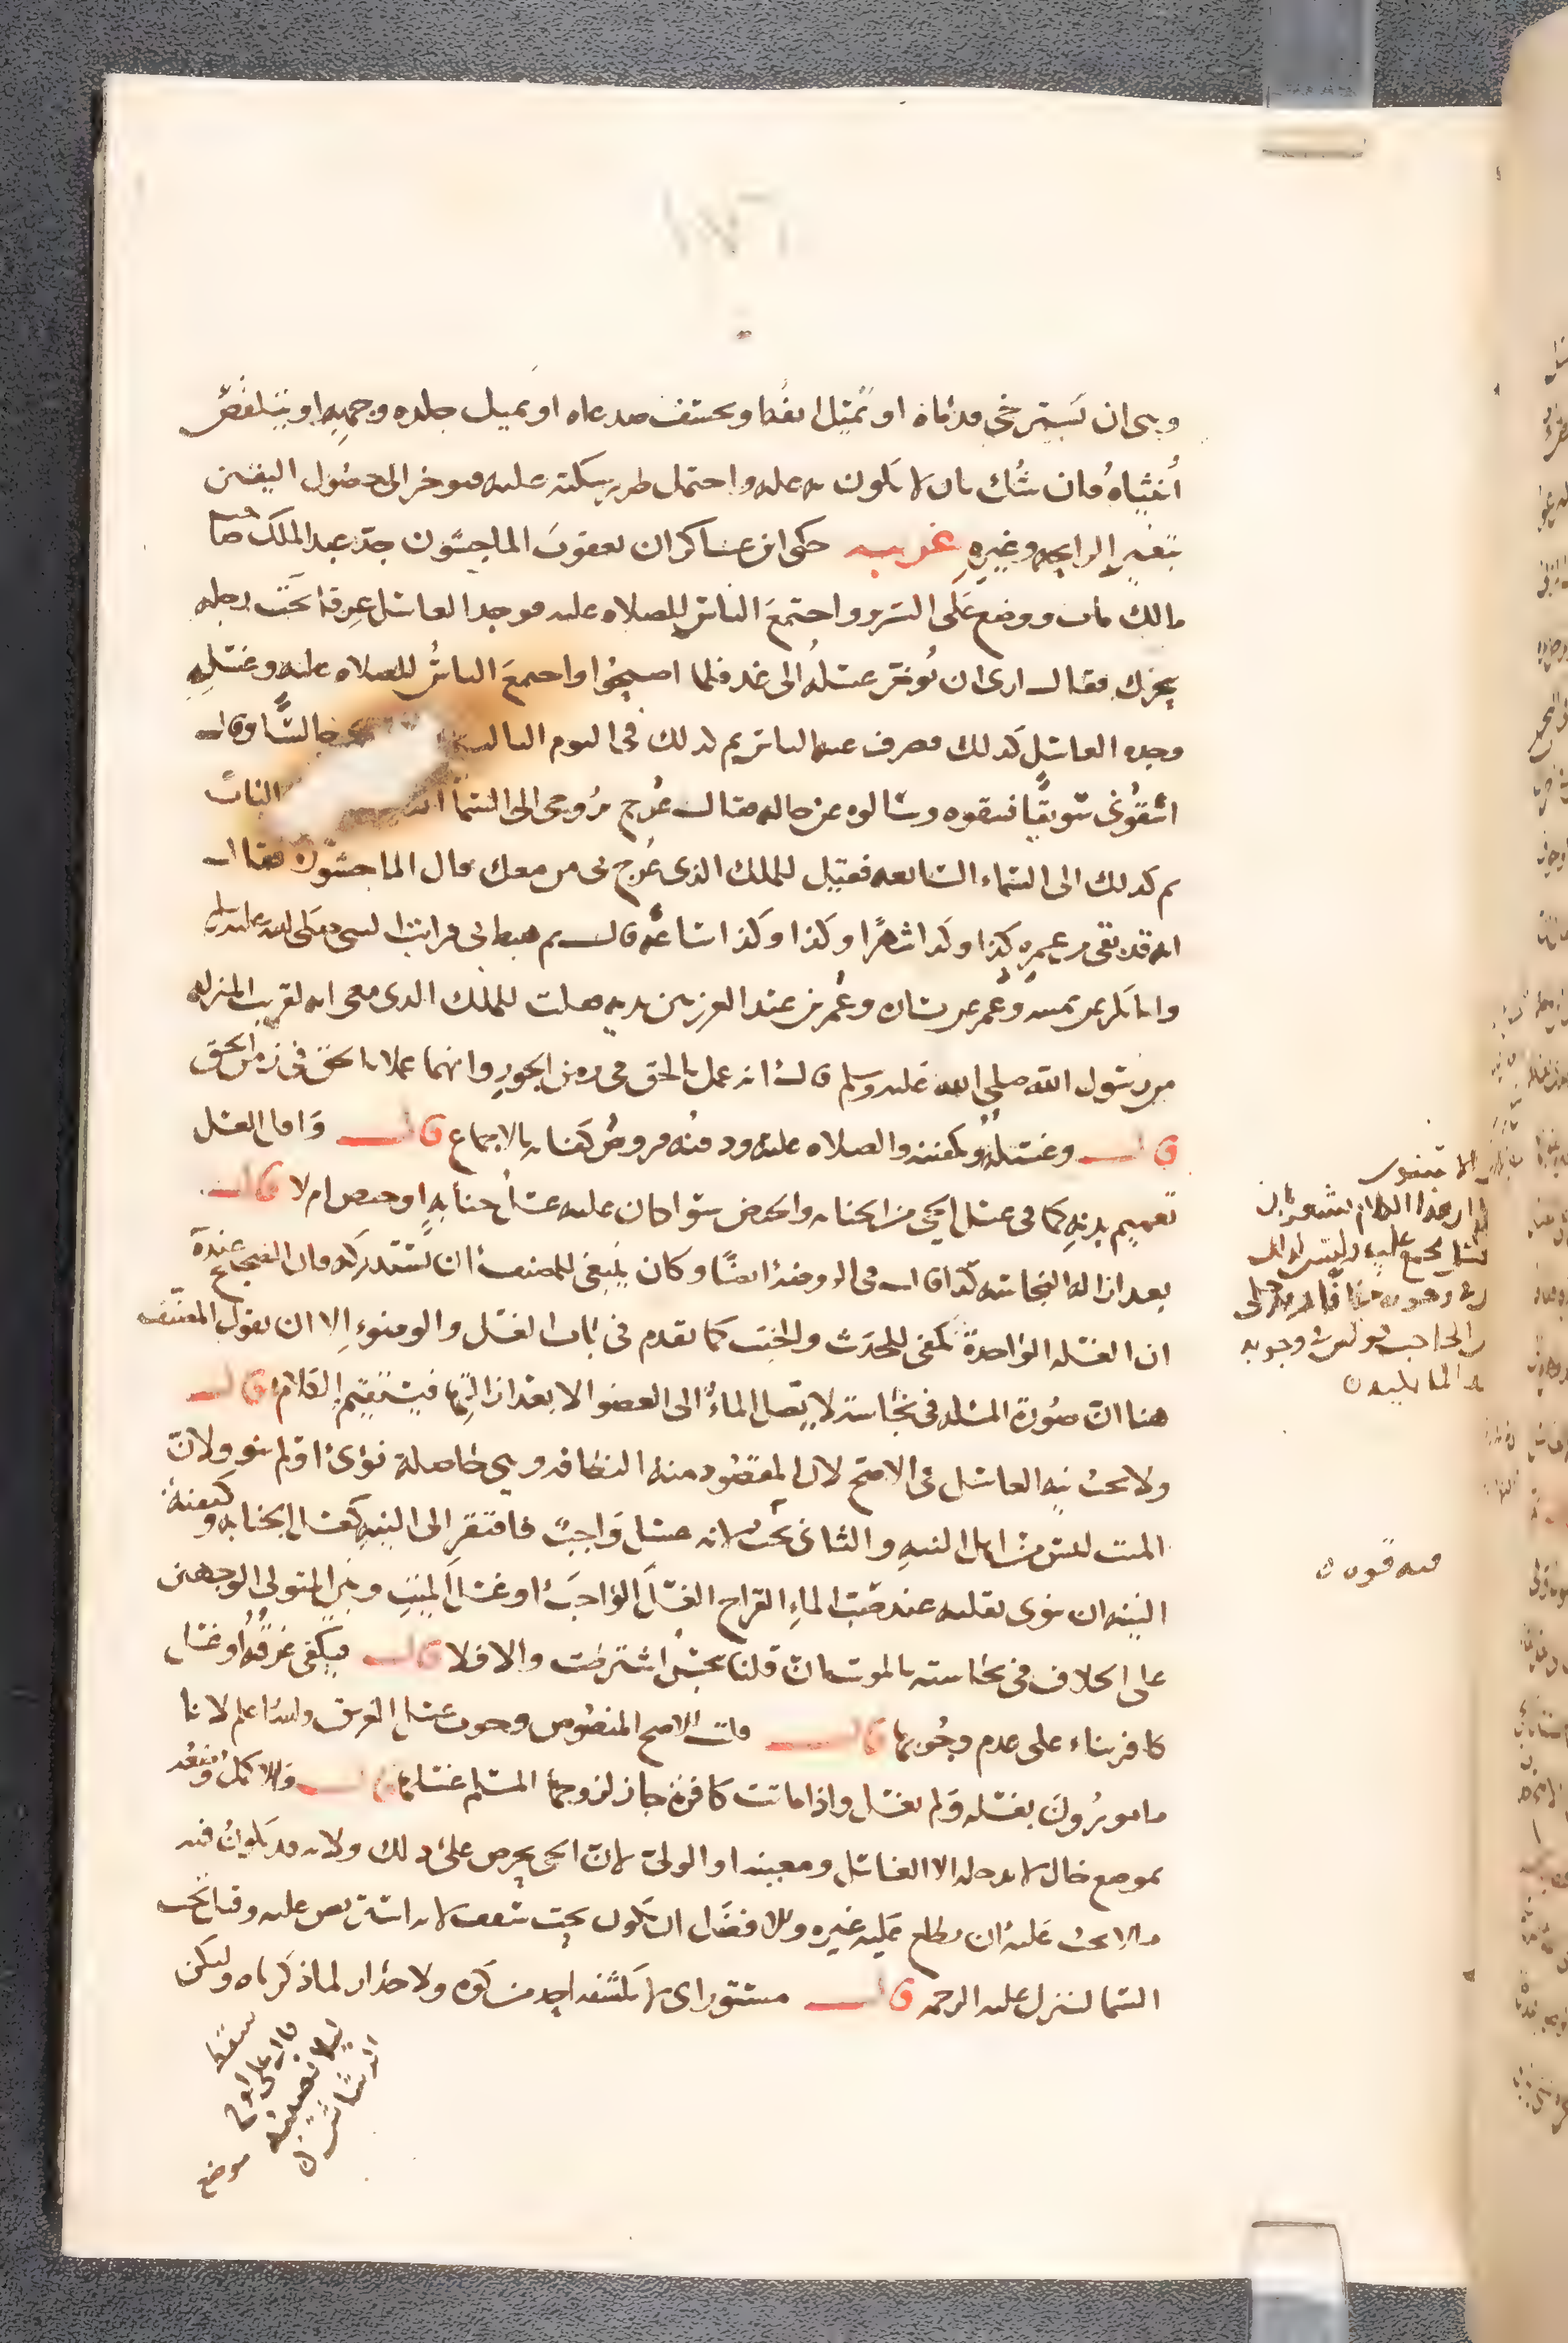 وهي ان تسترخي قدماه او تميل انفه او ينخسف صدغاه او تميل جلدة وجهه او يتقلص
أنثياه فان شك بان لا يكون به علة واحتمل طريان سكتة عليه فيوخر الى حصول اليقين
بتغير الرايحة وغيره غريب حكى ابن عساكر ان يعقوب الماجشون جد عبد الملك صاحب
مالك مات ووضع على السرير واجتمع الناس للصلاة عليه فوجد الغاسل عرقا تحت رجله
يتحرك فقال ارى ان نوخر غسله الى غد فلما اصبحوا واجتمع الناس للصلاة عليه وغسله
وجده الغاسل كذلك فصرف عنه الناس ثم كذلك في اليوم الثالث جالسا وقال
اسقوني سويقا فسقوه وسالوه عن حاله فقال عرج بروحي الى السما الباب
ثم كذلك الى السماء السابعة فقيل للملك الذي عرج بي من معك قال الماجشون فقال
انه قد بقي من عمره كذا وكذا شهرا وكذا وكذا ساعة قال ثم هبط بي فرايت النبي صلى الله عليه وسلم
وابا بكر عن يمينه وعمر عن يساره وعمر بن عبد العزيز بين يديه فقلت للملك الذي معي انه لقريب المنزلة
من رسول الله صلى الله عليه وسلم قال انه عمل بالحق في زمن الجور وانهما عملا بالحق في زمن الحق
قال وغسله وتكفينه والصلاة عليه ودفنه فروض كفاية بالاجماع قال واقل الغسل
تعميم بدنه كما في غسل الحي من الجنابة والحيض سوا كان عليه غسل جنابة او حيض ام لا قال
بعد ازالة النجاسة كذا قال في الروضة ايضا وكان ينبغي للمصنف ان يستدركه فان الصحيح عنده
ان الغسلة الواحدة تكفي للحدث والخبث كما تقدم في باب الغسل والوضوء الا ان يقول المصنف
هنا ان صورة المسلة في نجاسة لا يصل الماء الى العضو الا بعد ازالتها فيستقيم الكلام قال
ولا تجب نية الغاسل في الاصح لان المقصود منه النظافة وهي حاصلة نوى او لم ينو ولان
الميت ليس من اهل النية والثاني تجب لانه غسل واجب فافتقر الى النية كغسل الجنابة وكيفية
النية ان ينوي بقلبه عند صب الماء القراح الغسل الواجب او غسل الميت وبنى المتولي الوجهين
على الخلاف في نجاسته بالموت ان قلنا ينجس اشترطت والا فلا قال فيكفي غرقه او غسل
كافر بناء على عدم وجوبها قال قلت الاصح المنصوص وجوب غسل الغريق والله اعلم لانا
مامورون بغسله ولم نغسل واذا ماتت كافرة جاز لزوجها المسلم غسلها قال والاكمل وضعه
بموضع خال لا يدخله الا الغاسل ومعينه او الولي لان الحي يحرص على ذلك ولانه قد يكون فيه
ما لا يحب عليه ان يطلع عليه غيره والافضل ان يكون تحت سقف لانه استر نص عليه وقيل تحت
السما لتنزل عليه الرحمة قال مستور اي لا يكشفه احد من كوة ولا جدار لما ذكرناه وليكن
موضع